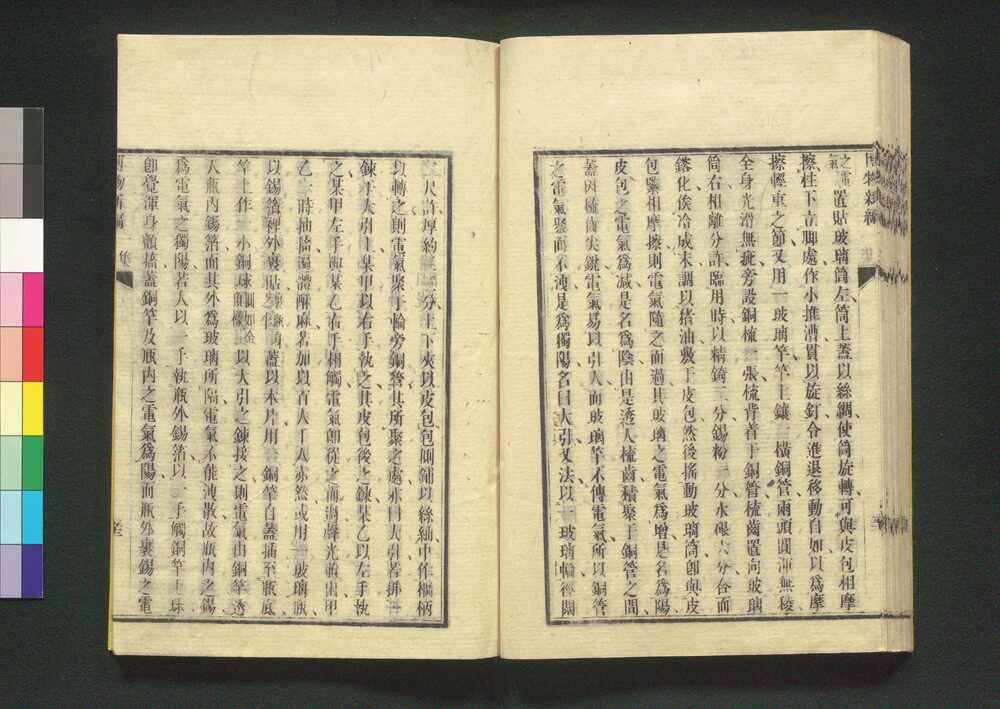 之電氣置貼玻璃筒左筒上蓋以絲綢使筒旋轉可與皮包相摩
擦柱下立脚處作小推漕貫以旋釘令進退移動自如以爲摩
擦輕重之節又用一玻璃竿竿上鑲一橫銅管兩頭圓渾無稜
全身光滑無疵旁設銅梳一張梳背著于銅管梳齒置向玻璃
筒右相離分許臨用時以精錡二分錫粉一分水銀六分合而
鎔化俟冷成末調以猪油敷于皮包然後搖動玻璃筒卽與皮
包緊相摩擦則電氣隨之而過其玻璃之電氣爲增是名爲陽
皮包之電氣爲减是名爲陰由是透入梳齒積聚于銅管之間
蓋因梳齒尖銳電氣易以引入而玻璃竿不傳電氣所以銅管
之電氣盛而不洩是爲獨陽名曰大引又法以一玻璃輪徑闊
尺許厚約 分上下夾以皮包包面鋪以絲紬中作樞柄
以轉之則電氣聚于輪旁銅管其所聚之處亦曰大引若掛一
鍊于大引上某甲以右手執之其皮包後之鍊某乙以左手執
之某甲左手與某乙右手相觸電氣卽從之而過聲光竝出甲
乙 時抽搐遍體酥麻若加以百人千人亦然或用一玻璃瓶
以錫箔裡外裹貼 蓋以木片用一銅竿自蓋插至瓶底
竿上作一小銅球 以大引之鍊接之則電氣由銅竿透
入瓶內錫箔而其外爲玻璃所隔電氣不能洩散故瓶內之錫
爲電氣之獨陽若人以一手執瓶外錫箔以一手觸銅竿上球
卽覺渾身顫搐蓋銅竿及瓶內之電氣爲陽而瓶外裹錫之電